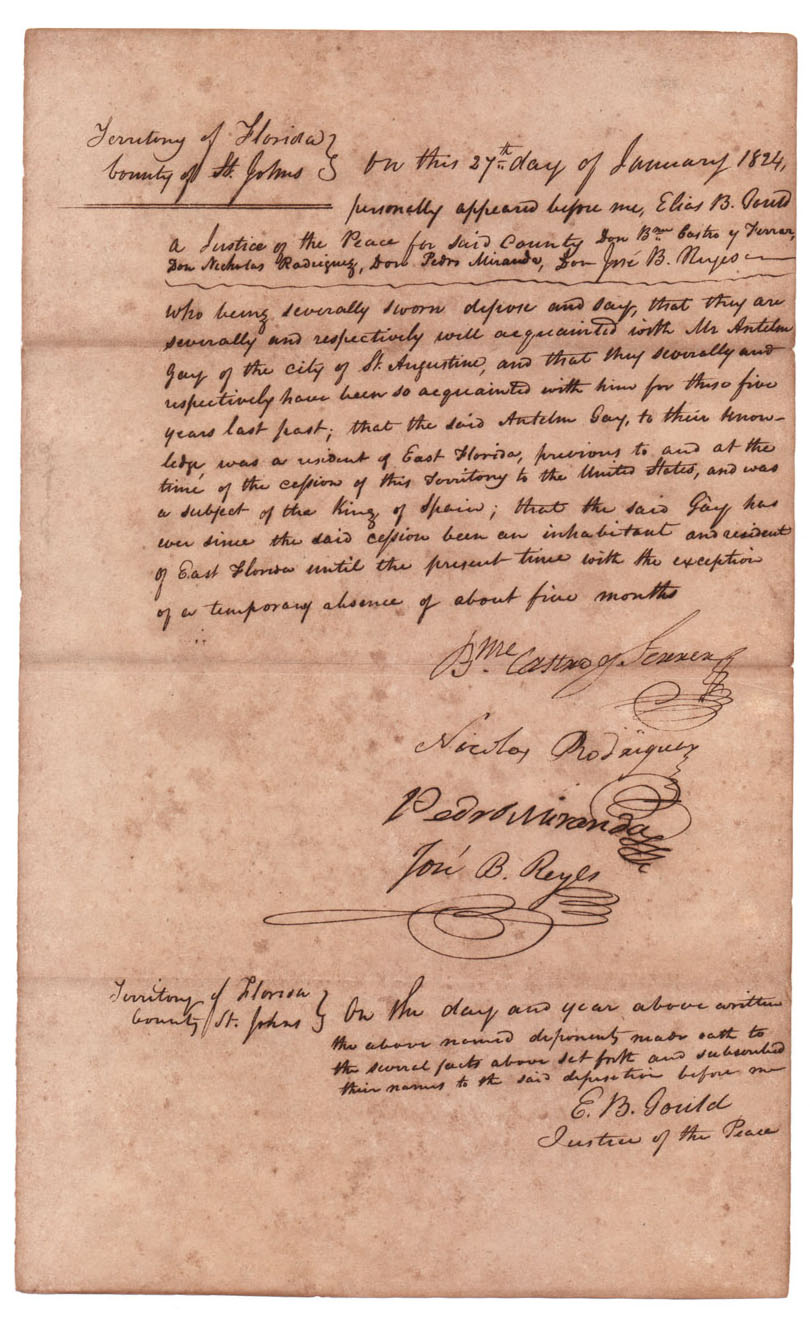 Territory of Florida }
County of St. Johns } On this 27th day of January 1824,
personally appeared before me, Elias B. Gould
a Justice of the Peace for said County Don Bme Castro y Ferrer,
Don Nicholas Rodriguez, Don Pedro Miranda, Don José B. Reyes
who being severally sworn depose and say, that they are
severally and respectively well acquainted with Mr Antelm
Gay of the city of St. Augustine, and that they severally and
respectively have been so acquainted with him for these five
years last past; that the said Antelm Gay, to their know-
ledge, was a resident of East Florida, previous to and at the
time of the cession of this Territory to the United States, and was
a subject of the King of Spain; that the said Gay has
ever since the said cession been an inhabitant and resident
of East Florida until the present time with the exception
of a temporary absence of about five months
Bme. Castro y Ferrer
Nicolas Rodriguez
Pedro Miranda
José B. Reyes
Territory of Florida }
County St. Johns } On the day and year above written
the above named deponents made oath to
the several facts above set forth and subscribed
their names to the said deposition before me
E. B. Gould
Justice of the Peace